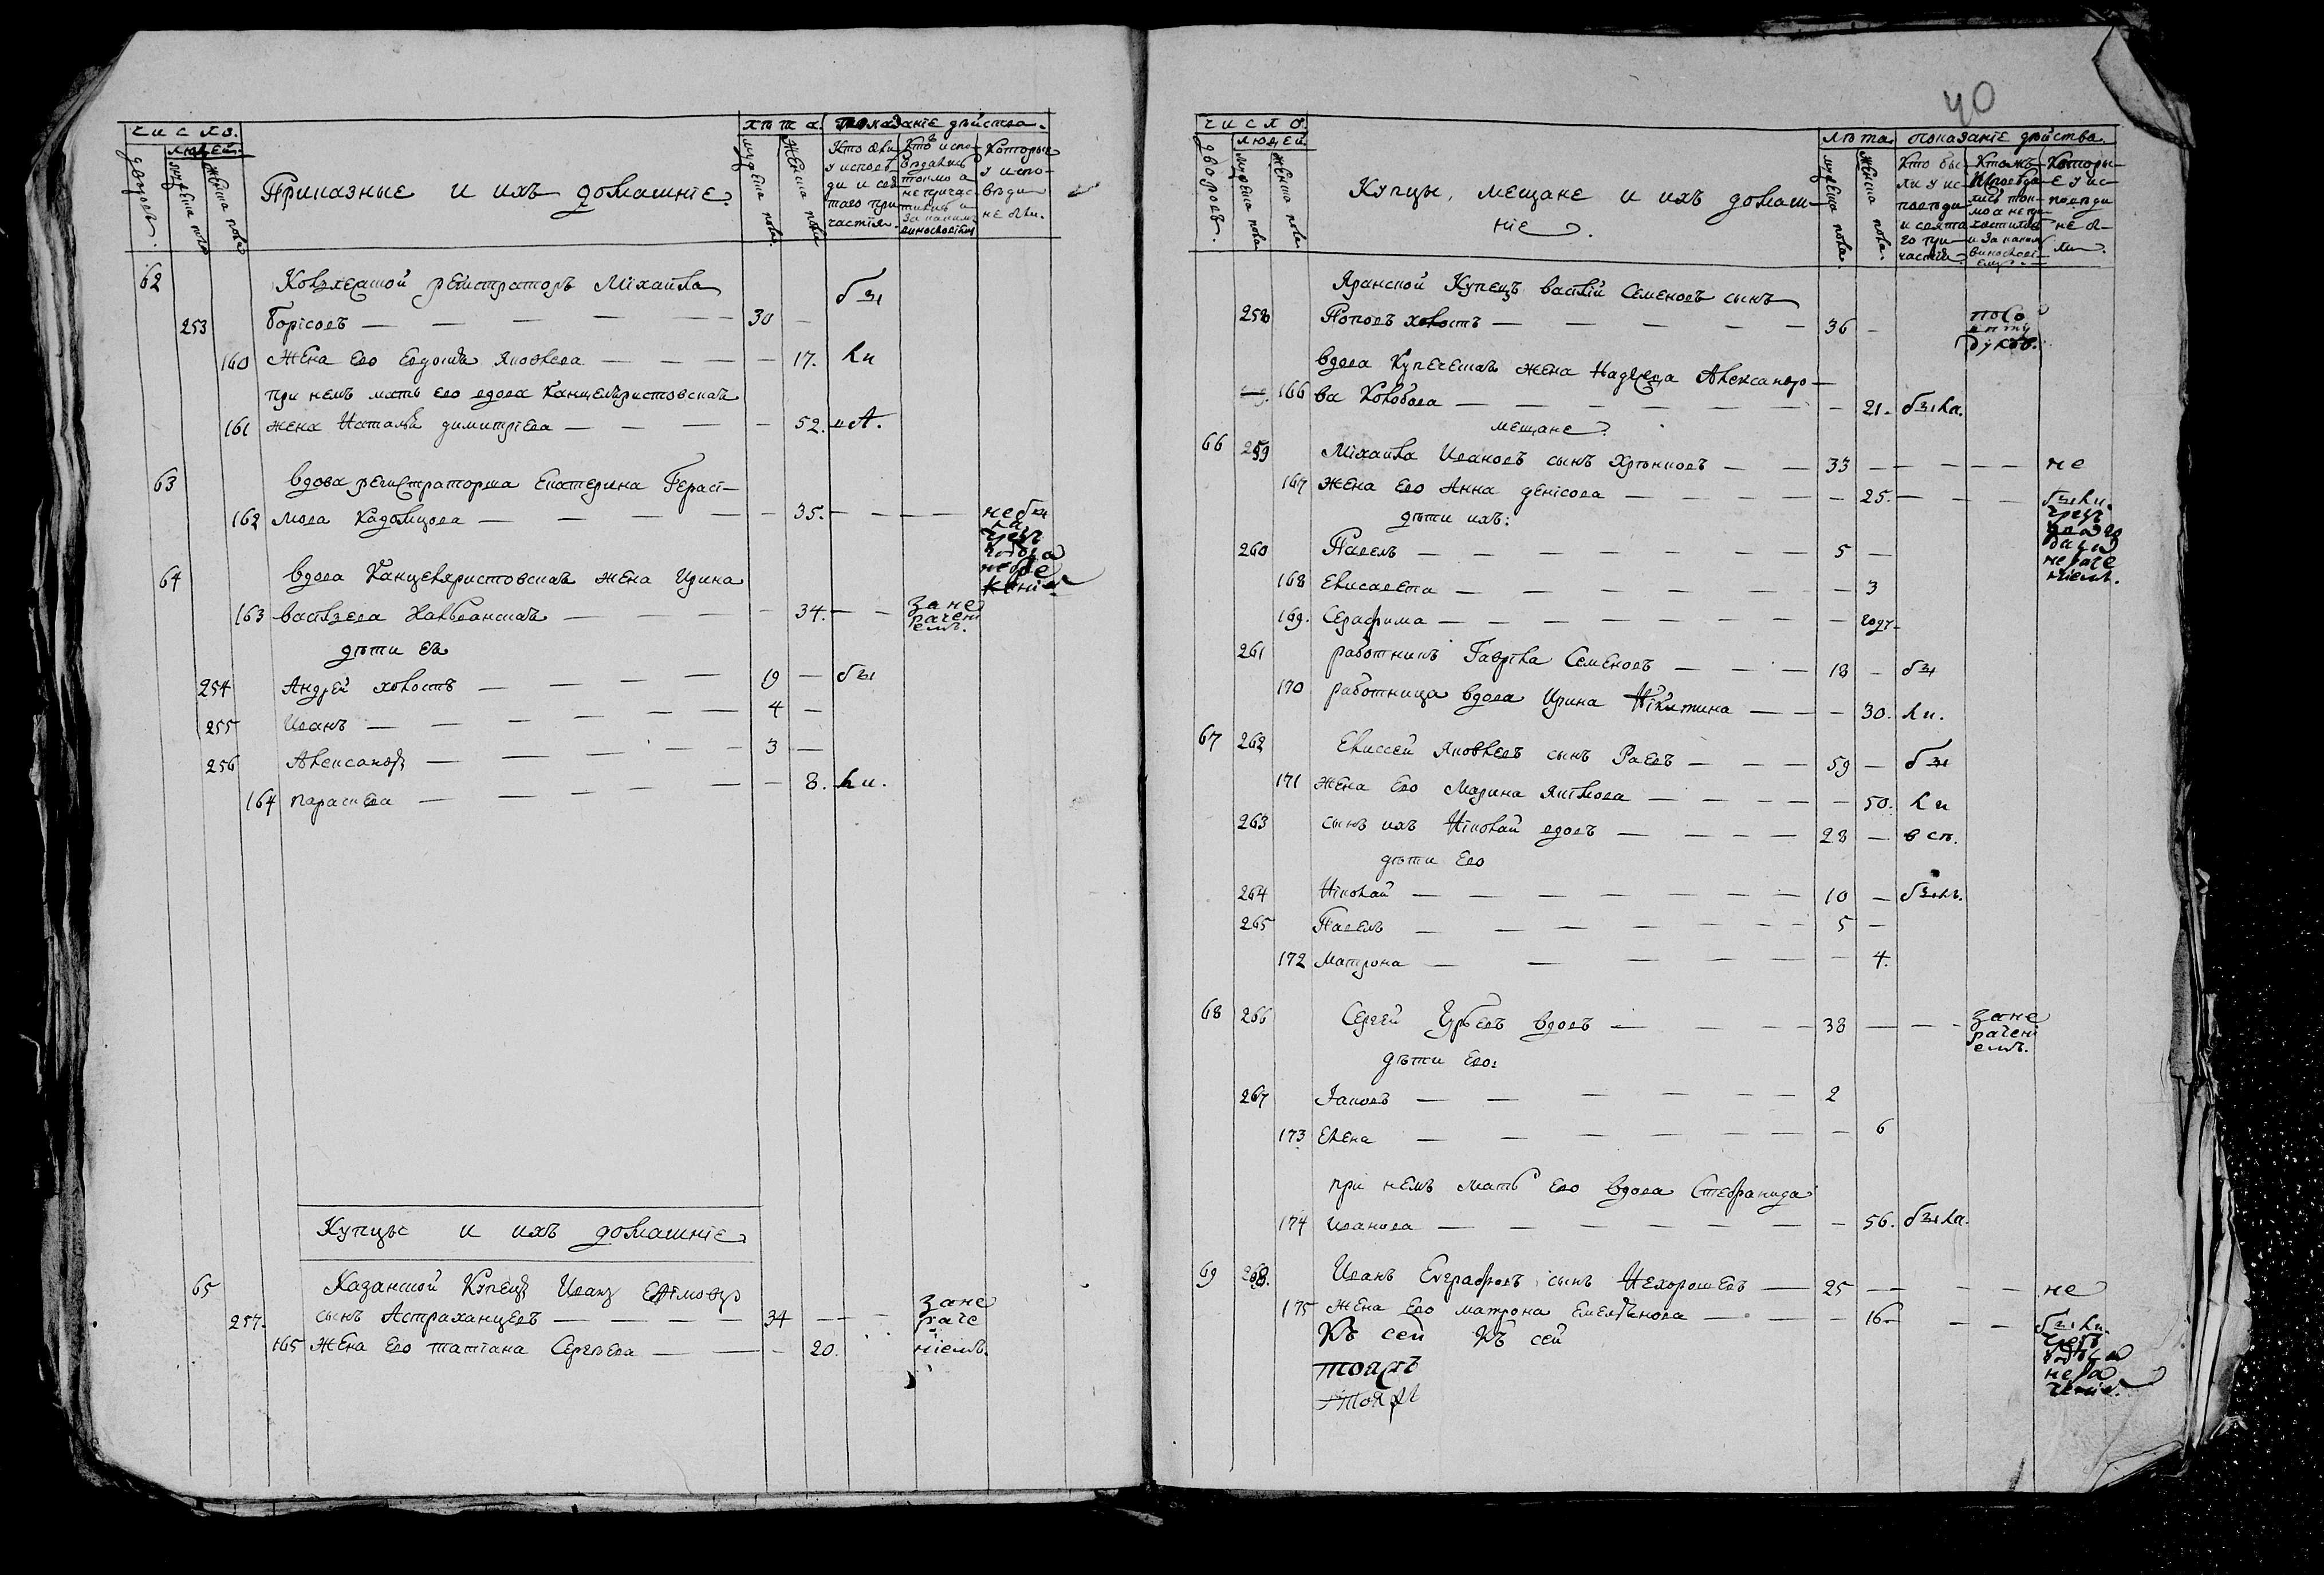 число. лѣта. показанїе дѣйства.
дворовъ. людей.
мужеска пола женска пола
Приказные и ихъ домашнїе
мужеска пола. женска пола
Кто были у исповѣди и святаго причастїя.
Кто исповѣдались токмо а не причастились и за какимъ винословїемъ
Которые у исповѣди не были.
62 Коллежской регистраторъ Міхайла
253 Борісовъ — — — — — 30 — бы
160 жена его Евдокїя Яковлева — — — — 17. ли
при немъ мать его вдова Канцеляристовская
161 жена Наталья димитрїева — — — — 52.
63 вдова регистраторша Екатерина Герасі-
162 мова — — — — 35. — — — не бы
ла
чрезъ
64 вдова Канцеляристовская жена Ирина
163 васїльева — — — — 34. — — за не
рачені
емъ.
дѣти ея
254 Андрей холостъ — — — — 19 — бы
255 Иванъ — — — — — — 4 —
256 Александръ — — — — — 3 —
164 параскева — — — — — — 8. ли.
Купцы и ихъ домашнїе
65 Казанской Купецъ Иванъ Ефімовъ
257. сынъ Астраханцевъ — — — — 34 — — — за не
раче
165 жена его татїана Сергѣева — — — 20. нїемъ.
40
число. лѣта. показанїе дѣйства.
дворовъ. людей.
мужеска пола женска пола
Купцы, мещане и ихъ домаш-
нїе.
мужеска пола. женска пола.
Кто были у исповѣди и святаго причастїя
Кто жъ исповѣдались токмо а не причастились и за какимъ винословїемъ
Которые у исповѣди не были.
Яранской Купецъ васїлїй Семеновъ сынъ
258 Поповъ холостъ — — — — — 36 —
вдова Купеческая жена Надежда Александро-
166 ва — — — — — — 21. были.
мещане
66 259 Міхайла Ивановъ сынъ — — 33 — — — — не
167 жена его Анна денїсова — — — — — 25. — — — были.
чрезъ
дѣти ихъ:
нераче
нїемъ.
260 Павелъ — — — — — — — 5 —
168 Елисавета — — — — — — — 3
169. Серафима — — — — — — — годъ
261 работникъ Гаврїла Семеновъ — — — 18 — бы
170 работница вдова Ирина Нікитина — — — 30. ли.
67 262 Елиссей Яковлевъ сынъ Раевъ — — — 59 — бы
171 жена его Марина — — — — — 50. ли
263 сынъ ихъ Ніколай вдовъ — — — — 28 — в сѣ.
дѣти его
264 Ніколай — — — — — — 10 — былъ.
265 Павелъ — — — — — — 5 —
172 Матрона — — — — — — 4.
68 266 Сергей вдовъ — — — 38 — — — за не
рачені
емъ.
дѣти его:
267 Іаковъ — — — — — — 2
173 Елена — — — — — — — 6
при немъ мать его вдова Стефанида
174 Иванова — — — — — — — 56. была.
69 268. Иванъ Евграфовъ сынъ Нехорошевъ — 25 — — — не
175 жена его матрона Емельянова — — — 16 — — — были.
чрезъ
Къ сей Къ сей